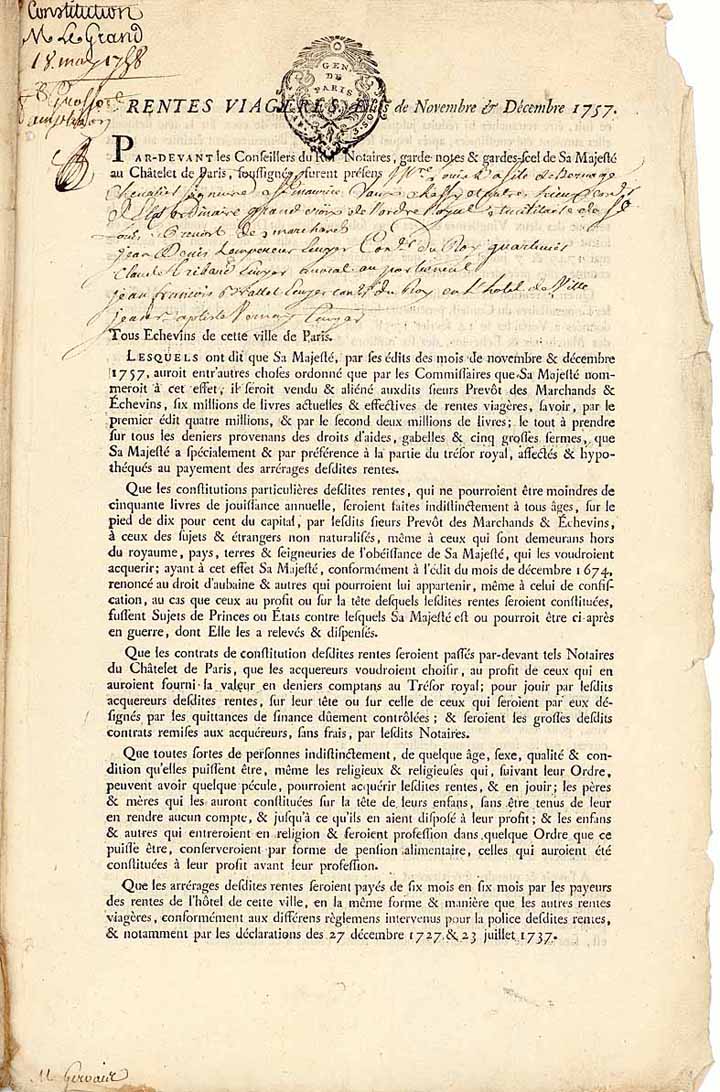 Constitution
M Le Grand
18. may 1758
GEN.
DE
PARIS
RENTES VIAGERES. Edits de Novembre & Décembre 1757.
PAR-DEVANT les Conseillers du Roi Notaires, garde-notes & gardes-scel de Sa Majesté
au Châtelet de Paris, soussignés, furent présens
Chevalier Seigneur
ordinaire grand croix de l'ordre Royal & militaire de St
Louis, Prevost des marchands
Jean Denis Lempereur Ecuyer Coner du Roy quartinier
Claude Tribard Ecuyer avocat au parlement
Jean François Brallet Ecuyer coner du Roy en l'hotel de Ville
Jean Baptiste Vernay Ecuyer
Tous Echevins de cette ville de Paris.
LESQUELS ont dit que Sa Majesté, par ses édits des mois de novembre & décembre
1757, auroit entr'autres choses ordonné que par les Commissaires que Sa Majesté nom-
meroit à cet effet, il seroit vendu & aliéné auxdits sieurs Prevôt des Marchands &
Échevins, six millions de livres actuelles & effectives de rentes viagères, savoir, par le
premier édit quatre millions, & par le second deux millions de livres; le tout à prendre
sur tous les deniers provenans des droits d'aides, gabelles & cinq grosses fermes, que
Sa Majesté a spécialement & par préférence à la partie du trésor royal, affectés & hypo-
théqués au payement des arrérages desdites rentes.
Que les constitutions particulières desdites rentes, qui ne pourroient être moindres de
cinquante livres de jouissance annuelle, seroient faites indistinctement à tous âges, sur le
pied de dix pour cent du capital, par lesdits sieurs Prevôt des Marchands & Échevins,
à ceux des sujets & étrangers non naturalisés, même à ceux qui sont demeurans hors
du royaume, pays, terres & seigneuries de l'obéissance de Sa Majesté, qui les voudroient
acquerir; ayant à cet effet Sa Majesté, conformément à l'édit du mois de décembre 1674,
renoncé au droit d'aubaine & autres qui pourroient lui appartenir, même à celui de confis-
cation, au cas que ceux au profit ou sur la tête desquels lesdites rentes seroient constituées,
fussent Sujets de Princes ou États contre lesquels Sa Majesté est ou pourroit être ci-après
en guerre, dont Elle les a relevés & dispensés.
Que les contrats de constitution desdites rentes seroient passés par-devant tels Notaires
du Châtelet de Paris, que les acquereurs voudroient choisir, au profit de ceux qui en
auroient fourni la valeur en deniers comptans au Trésor royal; pour jouir par lesdits
acquereurs desdites rentes, sur leur tête ou sur celle de ceux qui seroient par eux dé-
signés par les quittances de finance dûement contrôlées; & seroient les grosses desdits
contrats remises aux acquéreurs, sans frais, par lesdits Notaires.
Que toutes sortes de personnes indistinctement, de quelque âge, sexe, qualité & con-
dition qu'elles puissent être, même les religieux & religieuses qui, suivant leur Ordre,
peuvent avoir quelque pécule, pourroient acquérir lesdites rentes, & en jouir; les pères
& mères qui les auront constituées sur la tête de leurs enfans, sans être tenus de leur
en rendre aucun compte, & jusqu'à ce qu'ils en aient disposé à leur profit; & les enfans
& autres qui entreroient en religion & feroient profession dans quelque Ordre que ce
puisse être, conserveroient par forme de pension alimentaire, celles qui auroient été
constituées à leur profit avant leur profession.
Que les arrérages desdites rentes seroient payés de six mois en six mois par les payeurs
des rentes de l'hôtel de cette ville, en la même forme & manière que les autres rentes
viagères, conformément aux différens règlemens intervenus pour la police desdites rentes,
& notamment par les déclarations des 27 décembre 1727 & 23 juillet 1737.
M Gervais